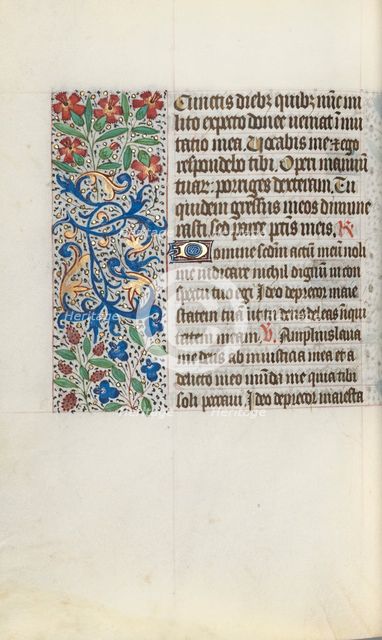 Cunctis dieb; quib; nu̅c mi
lito expecto donec veniat i̅mu
tatio mea. Vocabis me et ego
respondebo tibi. Operi manuu̅
tuar; porriges dexteram. Tu
quidem gressus meos dinume
rasti, sed parce pctis̅ meis. R
Domine sed̅m actu̅ meu̅ noli
me iudicare nichil dignu̅ in con
spectu tuo egi. Ideo deprecor maie
statem tua̅ ut tu deus deleas iniqui
tatem meam. V Amplius laua
me deus ab iniusticia mea et a
delicto meo mu̅da me quia tibi
soli peccaui. Ideo deprecor maiesta
Heritage
Heritage
Heritage
Heritage